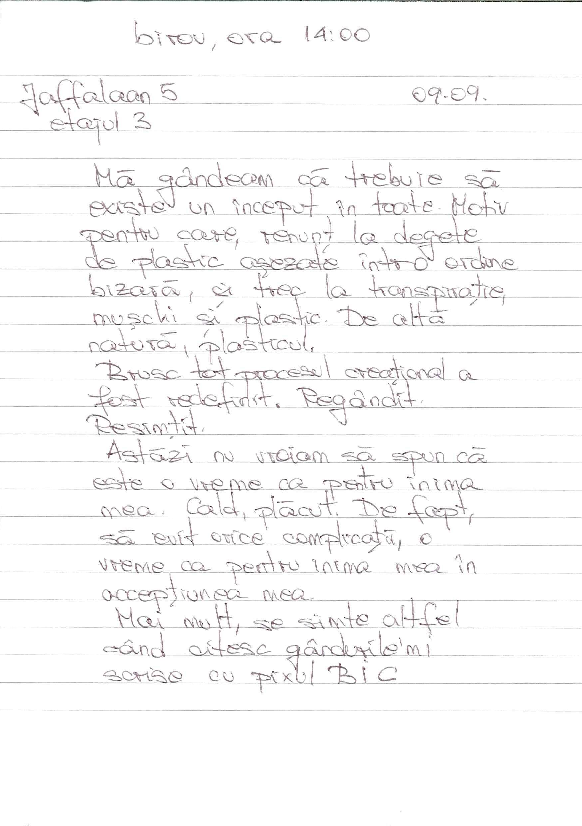 birou, ora 14:00
Jaffalaan 5 09.09.
etajul 3
Mă gândeam că trebuie să
existe un început în toate. Motiv
pentru care, renunț la degete
de plastic așezate într-o ordine
bizară, și trec la transpirație,
mușchi și plastic. De altă
natură, plasticul.
Brusc tot procesul creațional a
fost redefinit. Regândit.
Resimțit.
Astăzi nu vroiam să spun că
este o vreme ca pentru inima
mea. Cald, plăcut. De fapt,
să evit orice complicații, o
vreme ca pentru inima mea în
accepțiunea mea.
Mai mult, se simte altfel
când citesc gândurile'mi
scrise cu pixul BIC